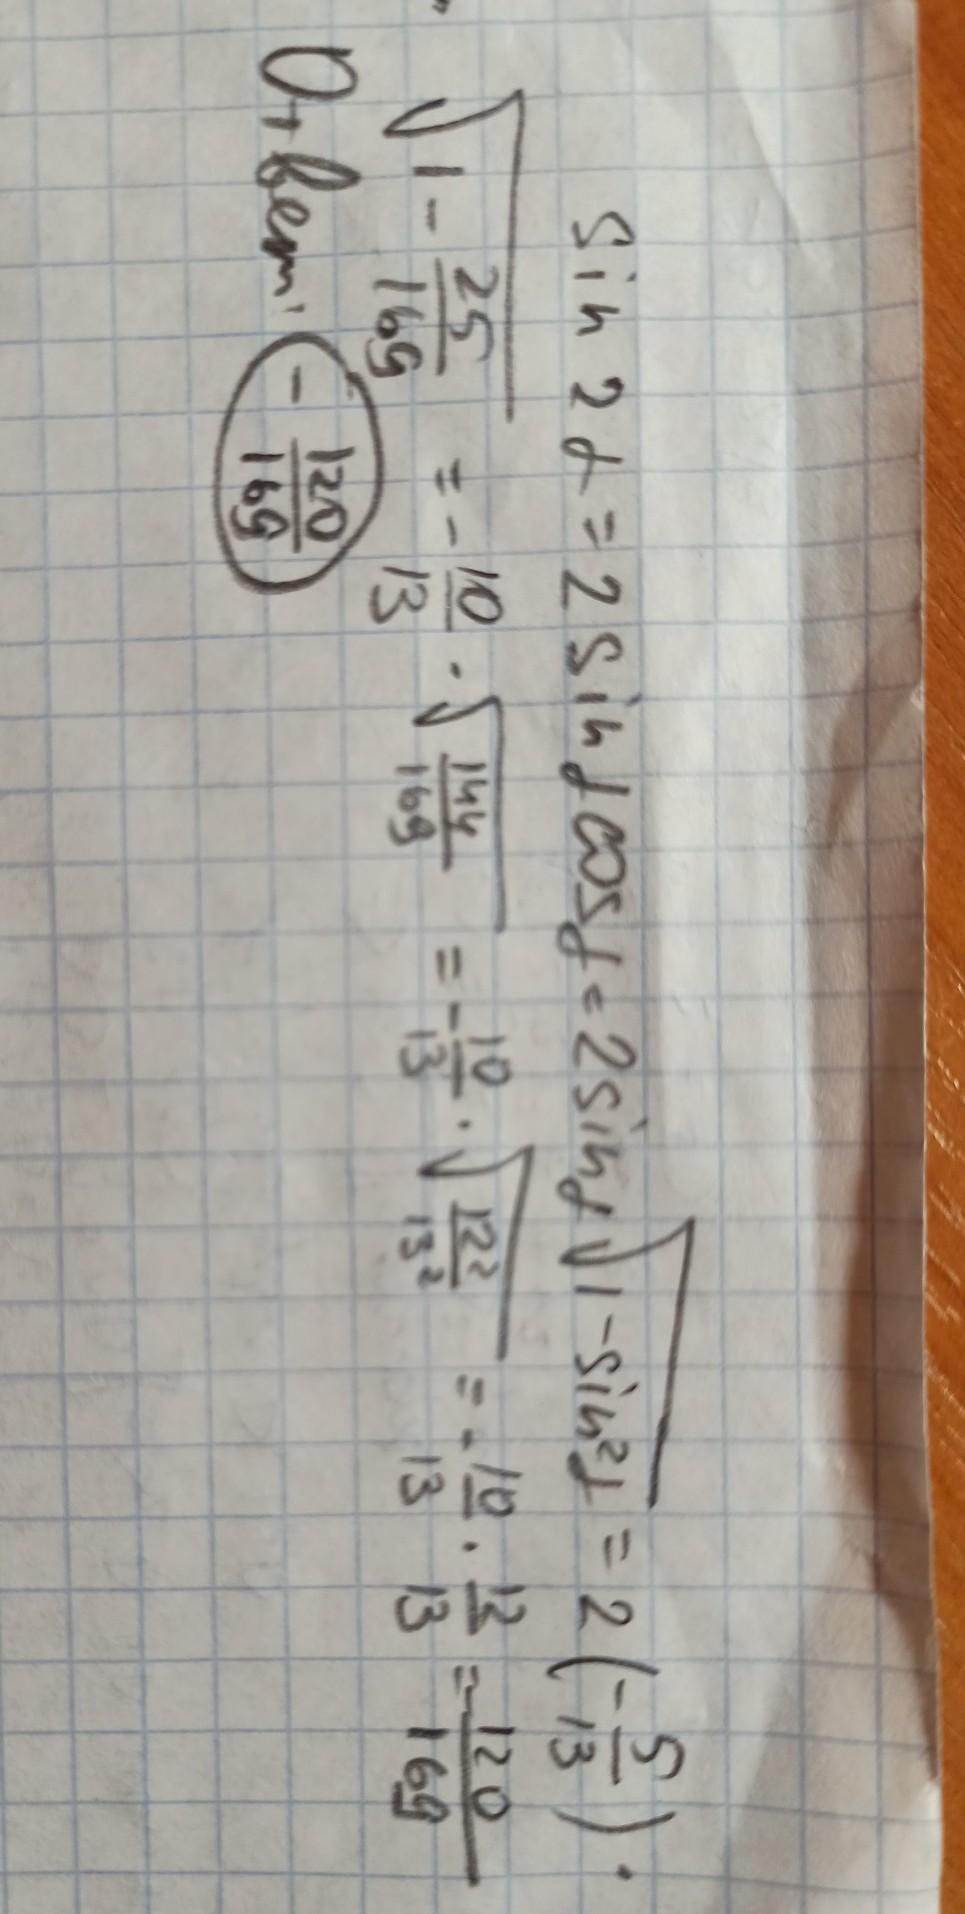 sin 2α = 2 sin α cos α = 2 sin α √(1 - sin²α) = 2 (-5/13) ·
√(1 - 25/169) = - 10/13 · √(144/169) = - 10/13 · √(12²/13²) = - 10/13 · 12/13 = - 120/169
Ответ: - 120/169